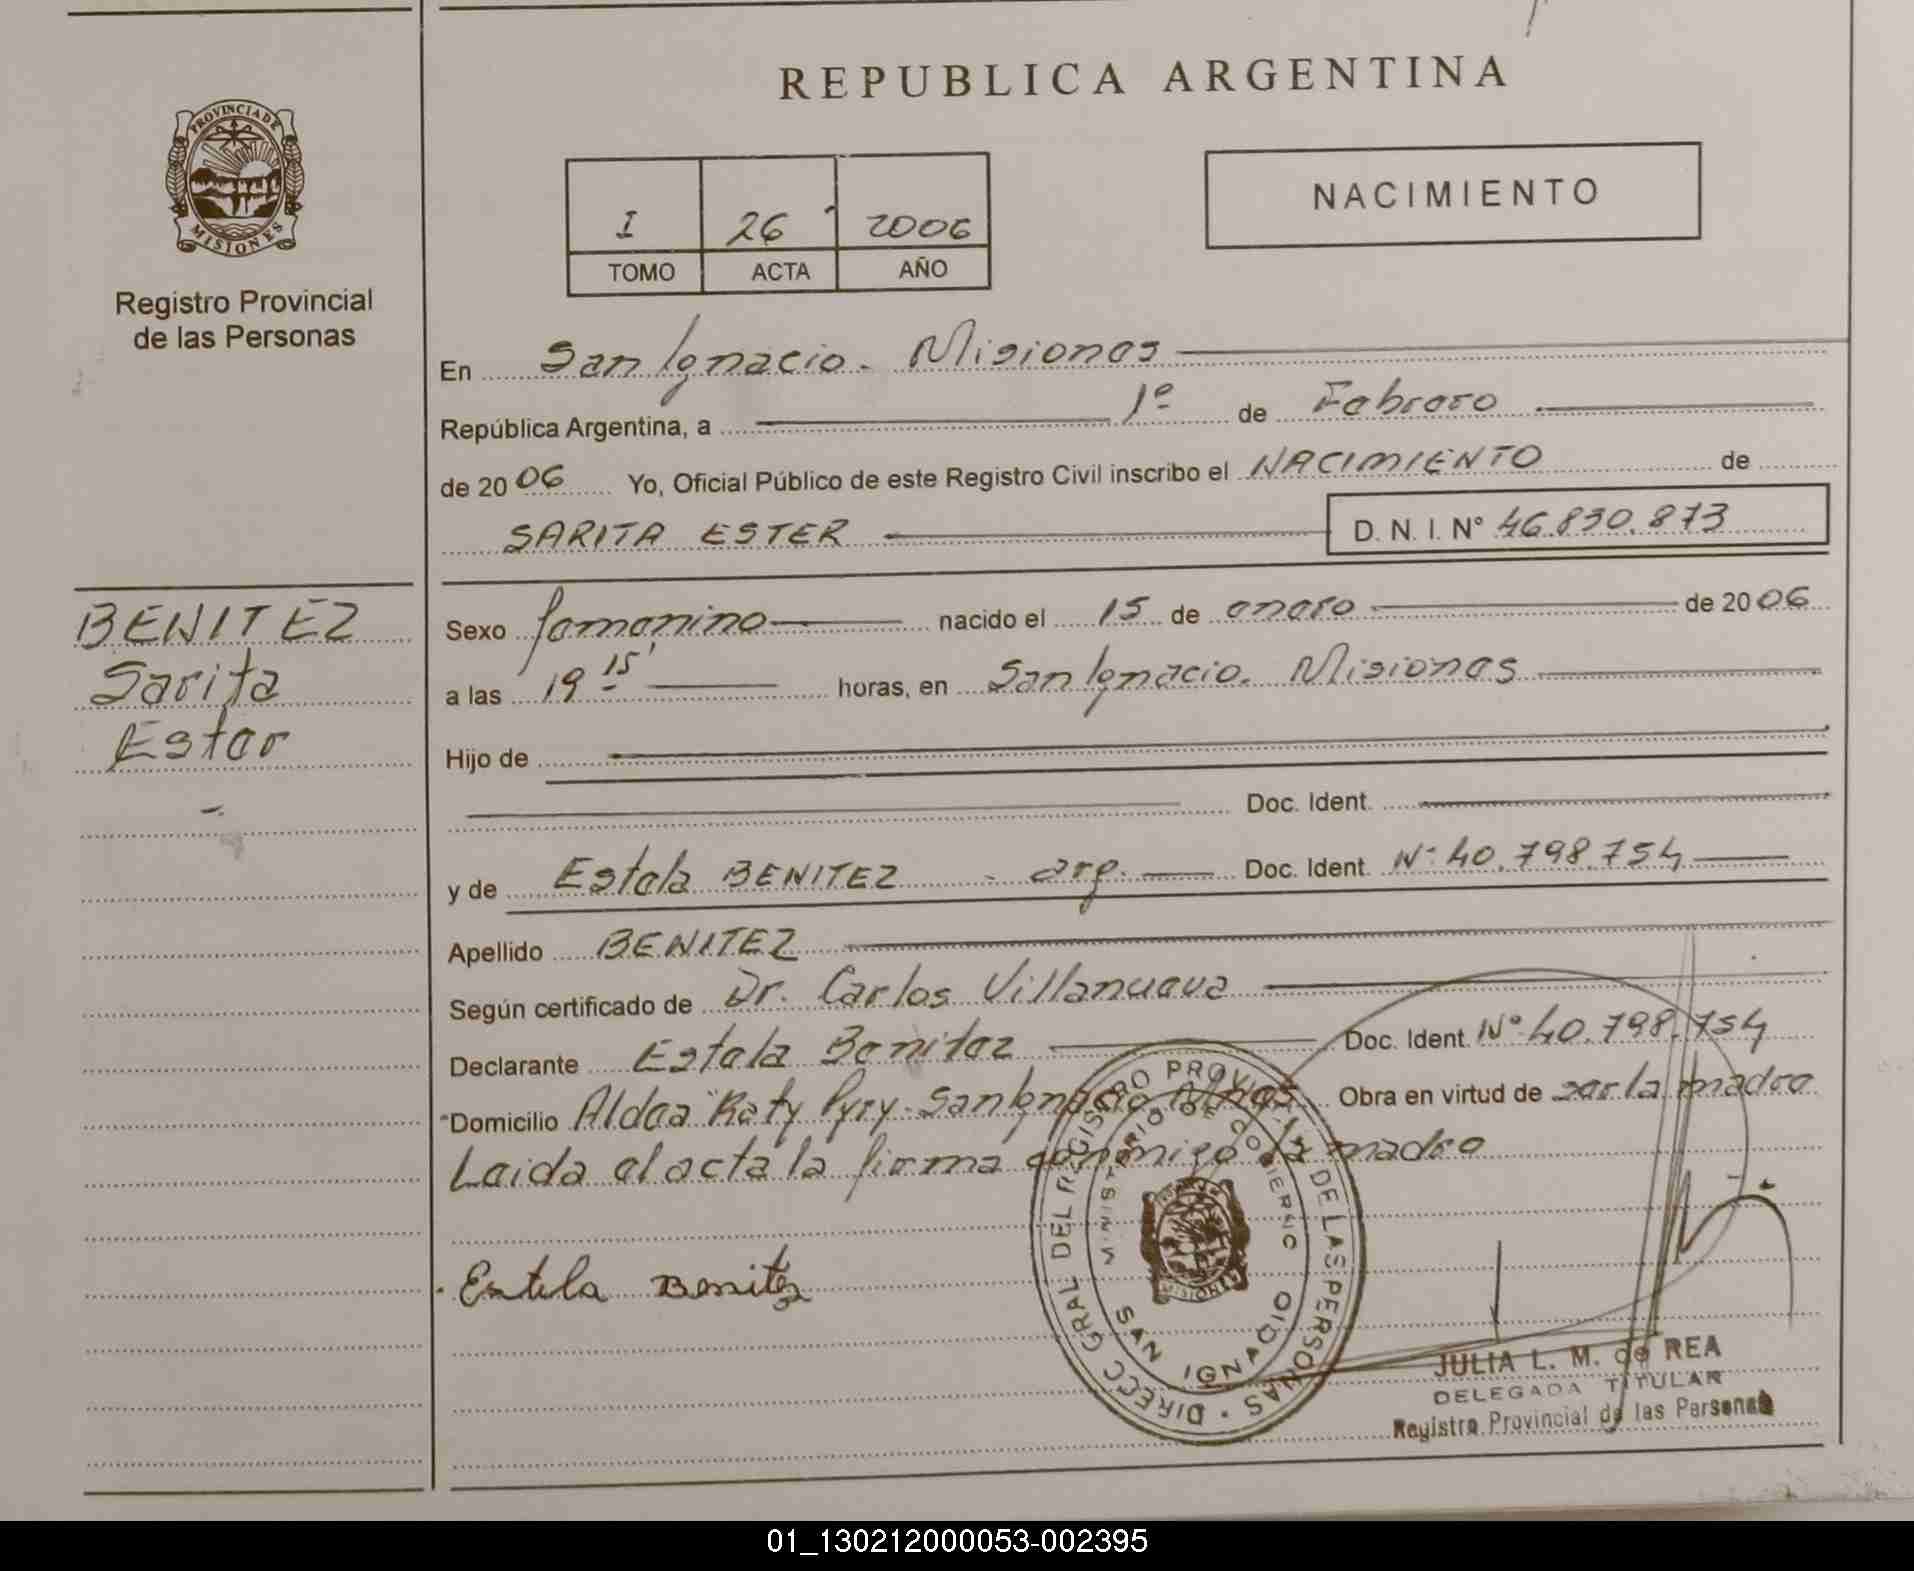 REPUBLICA ARGENTINA
PROVINCIA DE
MISIONES
Registro Provincial
de las Personas
I 26 2006
TOMO ACTA AÑO
NACIMIENTO
En San Ignacio. Misiones
República Argentina, a 1º de Febrero
de 2006 Yo, Oficial Público de este Registro Civil inscribo el NACIMIENTO de
SARITA ESTER D. N. I. Nº 46.830.873
BENITEZ
Sarita
Ester
Sexo femenino nacido el 15 de enero de 2006
a las 19 15' horas, en San Ignacio. Misiones
Hijo de
Doc. Ident.
y de Estela BENITEZ - arg. Doc. Ident. Nº 40.798.754
Apellido BENITEZ
Según certificado de Dr. Carlos Villanueva
Declarante Estela Benitez Doc. Ident. Nº 40.798.754
Domicilio Aldea "Katy Pyry. San Ignacio Mnes. Obra en virtud de ser la madre
Leida el acta la firma conmigo la madre
Estela Benitez
DIRECC GRAL DEL REGISTRO PROVINCIAL DE LAS PERSONAS
MINISTERIO DE GOBIERNO
MISIONES
SAN IGNACIO
JULIA L. M. de REA
DELEGADA TITULAR
Registro Provincial de las Personas
01_130212000053-002395